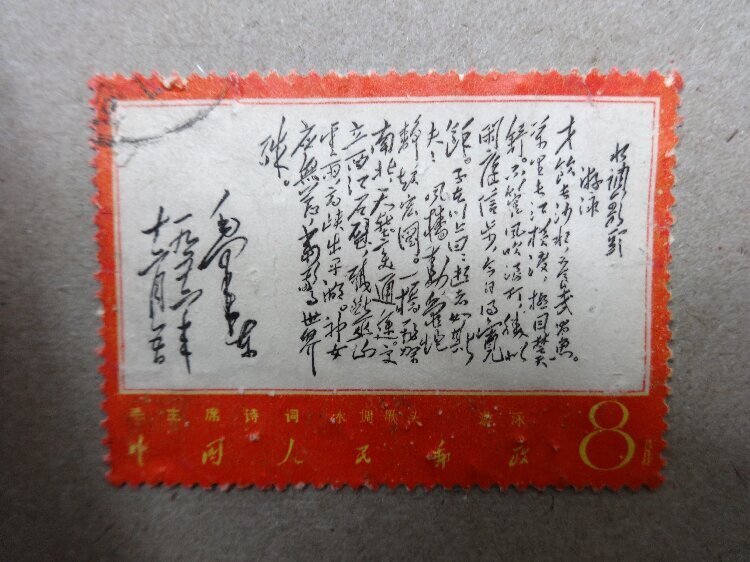 水调歌头
游泳
才饮长沙水，又食武昌鱼。
万里长江横渡，极目楚天
舒。不管风吹浪打，胜似
闲庭信步，今日得宽
馀。子在川上曰：逝者如斯
夫！风樯动，龟蛇
静，起宏图。一桥飞架
南北，天堑变通途。更
立西江石壁，截断巫山
云雨，高峡出平湖。神女
应无恙，当惊世界
殊。
毛泽东
一九五六年
十二月五日
毛主席诗词 水调歌头 游泳
中国人民邮政
8分